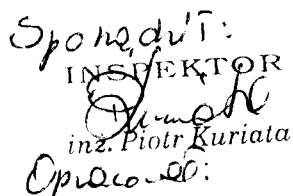 Sporządził:
INSPEKTOR
inż. Piotr Kuriata
Opracował: